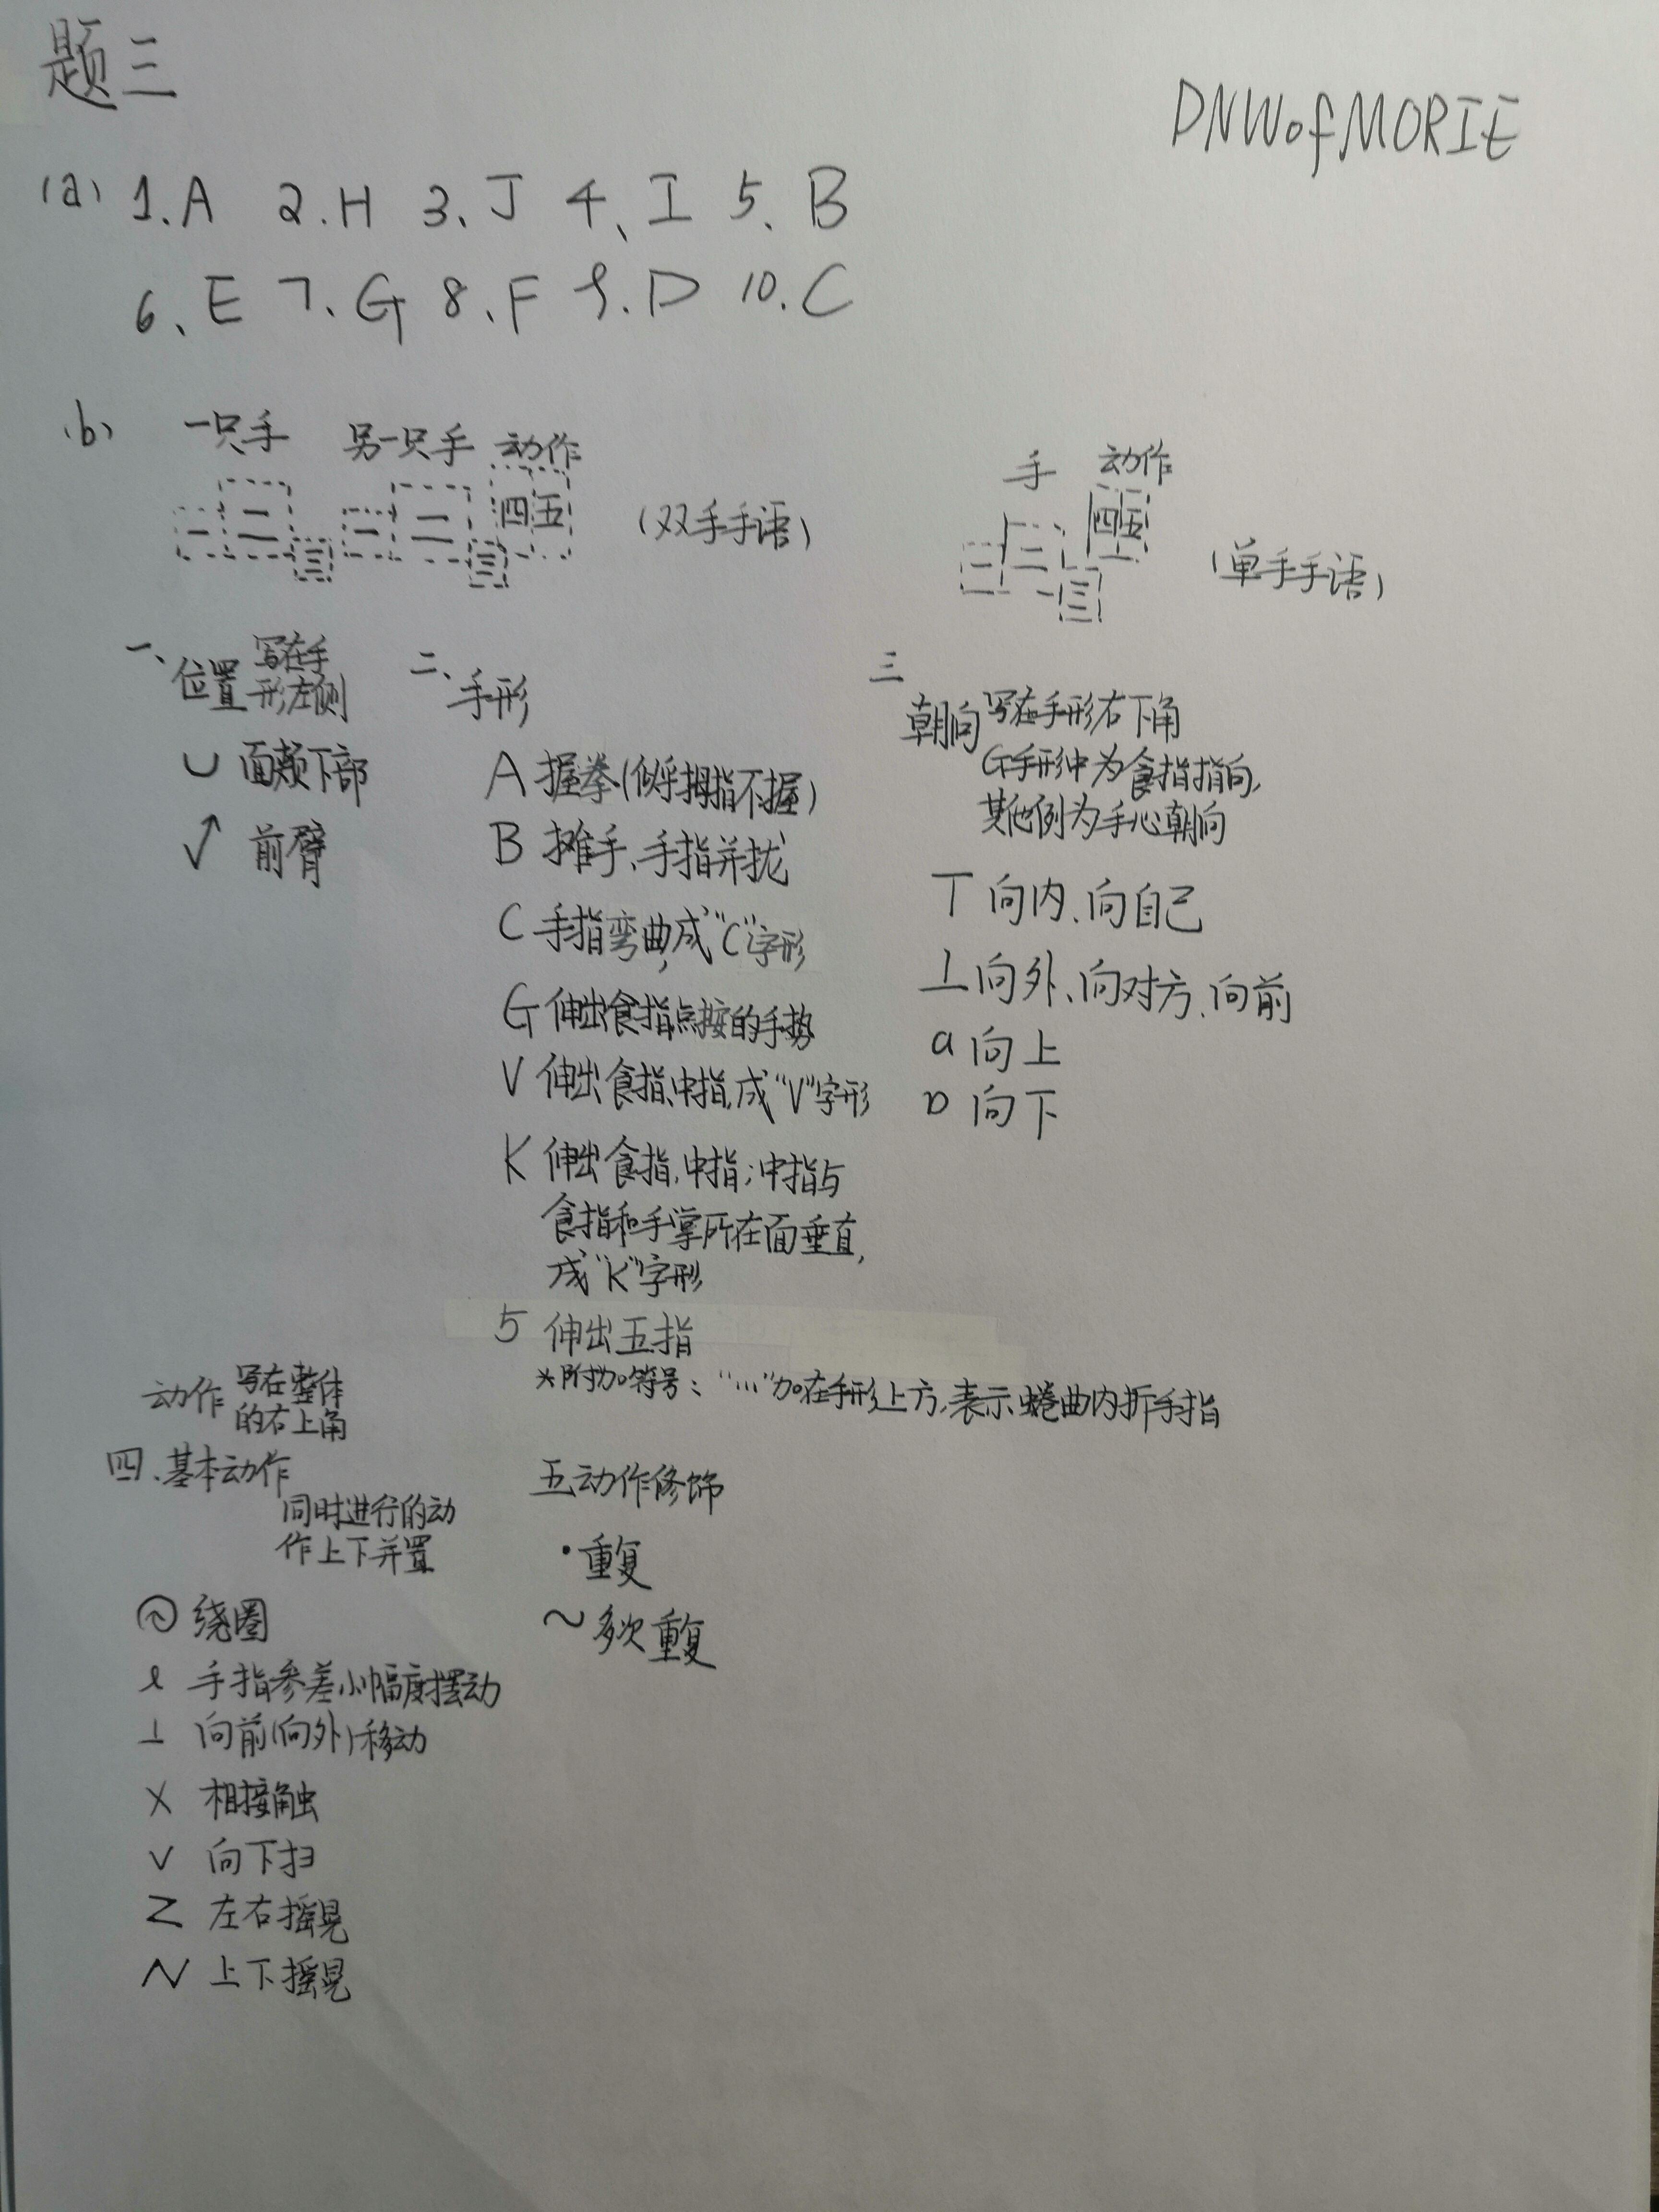 题三
DNWofMORIE
(a) 1.A 2.H 3、J 4、I 5、B
6、E 7.G 8.F 9.D 10.C
(b) 一只手 另一只手 动作
一 二 三 一 二 三 四 五 (双手手语)
手 动作
一 二 三 四 五 (单手手语)
一、位置 写在手形左侧
∪ 面颊下部
✓ 前臂
二、手形
A 握拳(似乎拇指不握)
B 摊手、手指并拢
C 手指弯曲,成“C”字形
G 伸出食指点按的手势
V 伸出食指、中指,成“V”字形
K 伸出食指,中指;中指与
食指和手掌所在面垂直,
成“K”字形
5 伸出五指
*附加符号:“…”加在手形上方,表示蜷曲内折手指
三
朝向 写在手形右下角
G手形中为食指指向,
其他例为手心朝向
⊤ 向内、向自己
⊥ 向外、向对方、向前
ɑ 向上
ɒ 向下
动作 写在整体
的右上角
四、基本动作
同时进行的动
作上下并置
绕圈
手指参差小幅度摆动
⊥ 向前(向外)移动
X 相接触
V 向下扫
Z 左右摇晃
N 上下摇晃
五 动作修饰
· 重复
~ 多次重复